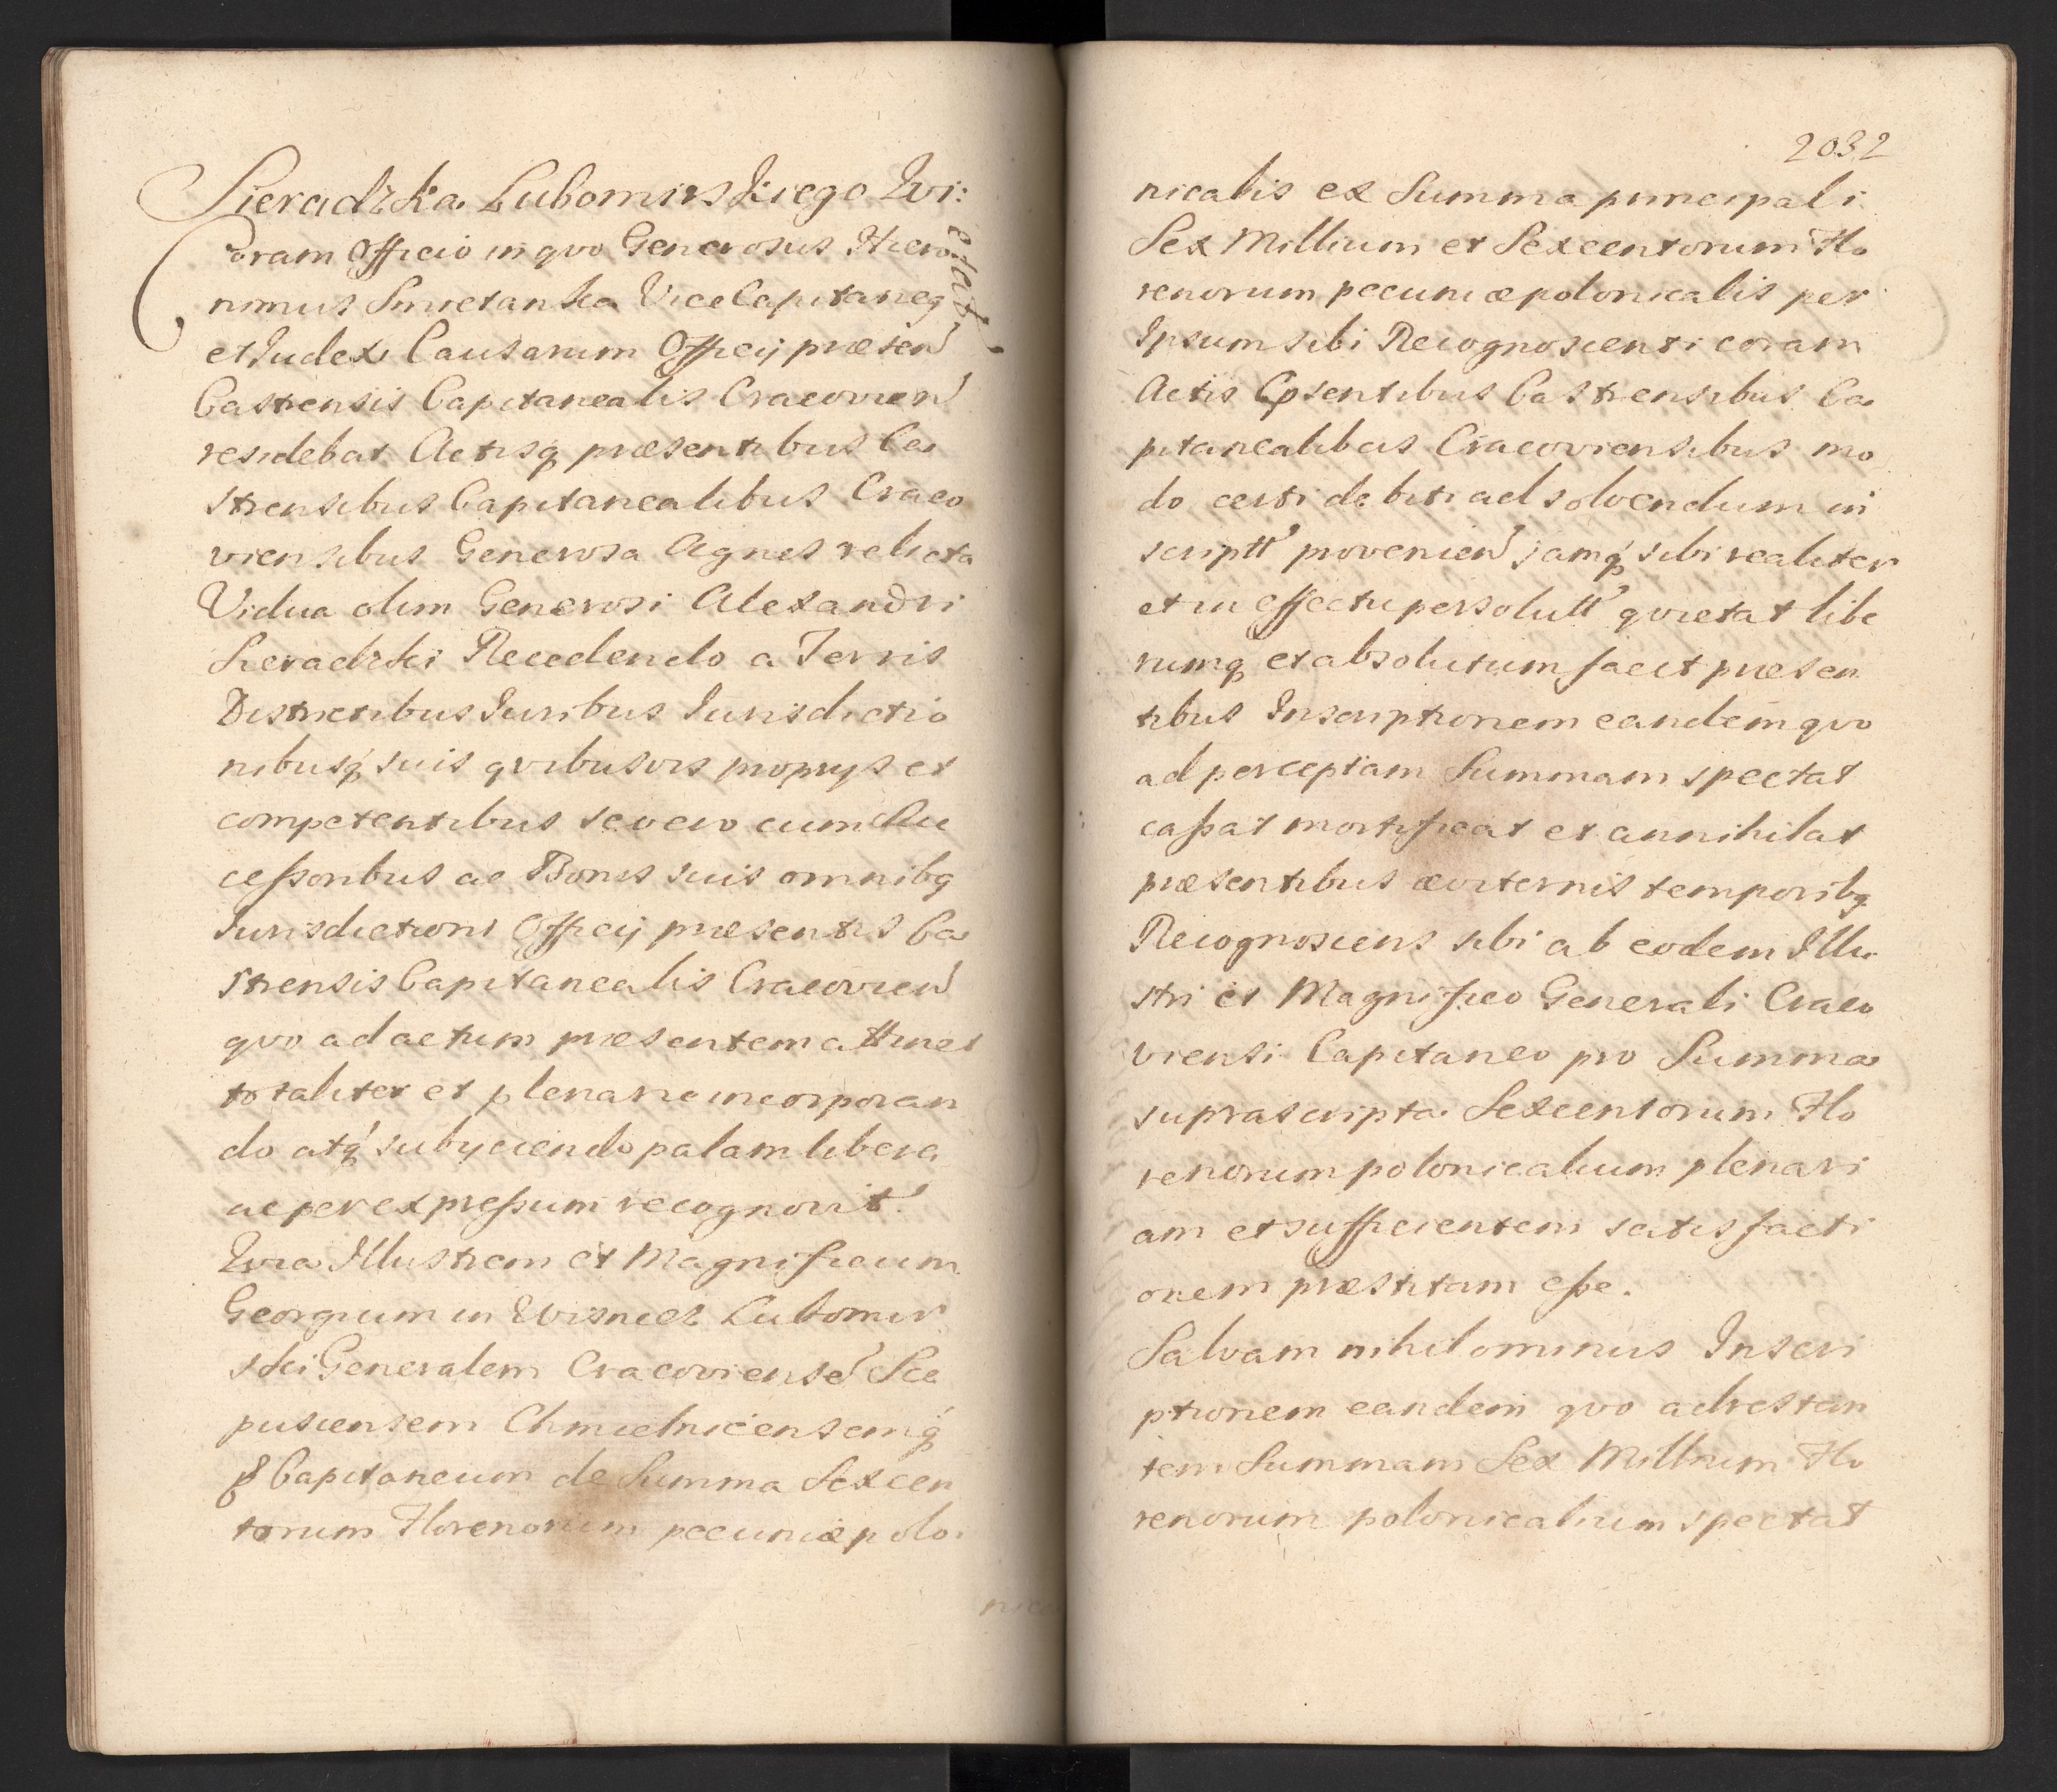 Sieradzka Lubomirskiego Qvi:
etat
Coram Officio in qvo Generosus Hiero
nimus Smietanka ViceCapitaneq
et Judex Causarum Officij præsen
Castrensis Capitanealis Cracovien
residebat Actisq præsentibus Ca
strensibus Capitanealibus Craco
viensibus Generosa Agnes relicta
Vidua olim Generosi Alexandri
Sieradzki Recedendo a Terris
Districtibus Juribus Jurisdictio
nibusq suis qvibusvis proprys et
competentibus se vero cum Suc
cessoribus ac Bonis suis omnibq
Jurisdictioni Officij præsentis Ca
strensis Capitanealis Cracovien
qvo ad actum præsentem attinet
totaliter et plenarie incorporan
do atq subyciendo palam libere
ac per expressum recognovit.
Qvia Illustrem et Magnificum
Georgium in Wisnicz Lubomir
ski Generalem Cracoviense Sce
pusiensem Chmielnicensemq
Capitaneum de Summa Sexcen
torum Florenorum pecuniæ polo
nica
2032
nicalis ex Summa principali
Sex Millium et Sexcentorum Flo
renorum pecuniæ polonicalis per
Ipsum sibi Recognoscenti coram
Actis Psentibus Castrensibus Ca
pitanealibus Cracoviensibus mo
do certi debiti ad solvendum in
scriptt provenien jamq sibi realiter
et in effectu persolutt qvietat libe
rumq et absolutum facit præsen
tibus Inscriptionem eandem qvo
ad perceptam Summam spectat
cassat mortificat et annihilat
præsentibus æviternis temporibq
Recognoscens sibi ab eodem Illu
stri et Magnifico Generali Craco
viensi Capitaneo pro Summa
suprascripta Sexcentorum Flo
renorum polonicalium plenari
am et sufficientem satisfacti
onem præstitam esse.
Salvam nihilominus Inscri
ptionem eandem qvo ad restan
tem Summam Sex Millium Flo
renorum polonicalium spectat